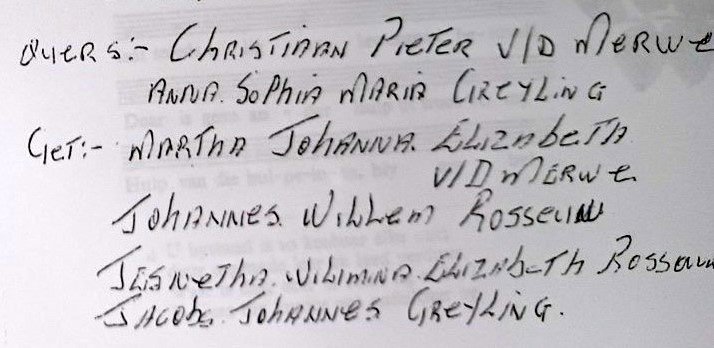 OUERS:- CHRISTIAAN PIETER V/D MERWE
ANNA. SOPHIA MARIA GREYLING
GET:- MARTHA JOHANNA. ELIZABETH
V/D MERWE
JOHANNES. WILLEM ROSSEUW
WILIMINA. ELIZABETH
JACOBS. JOHANNES GREYLING.